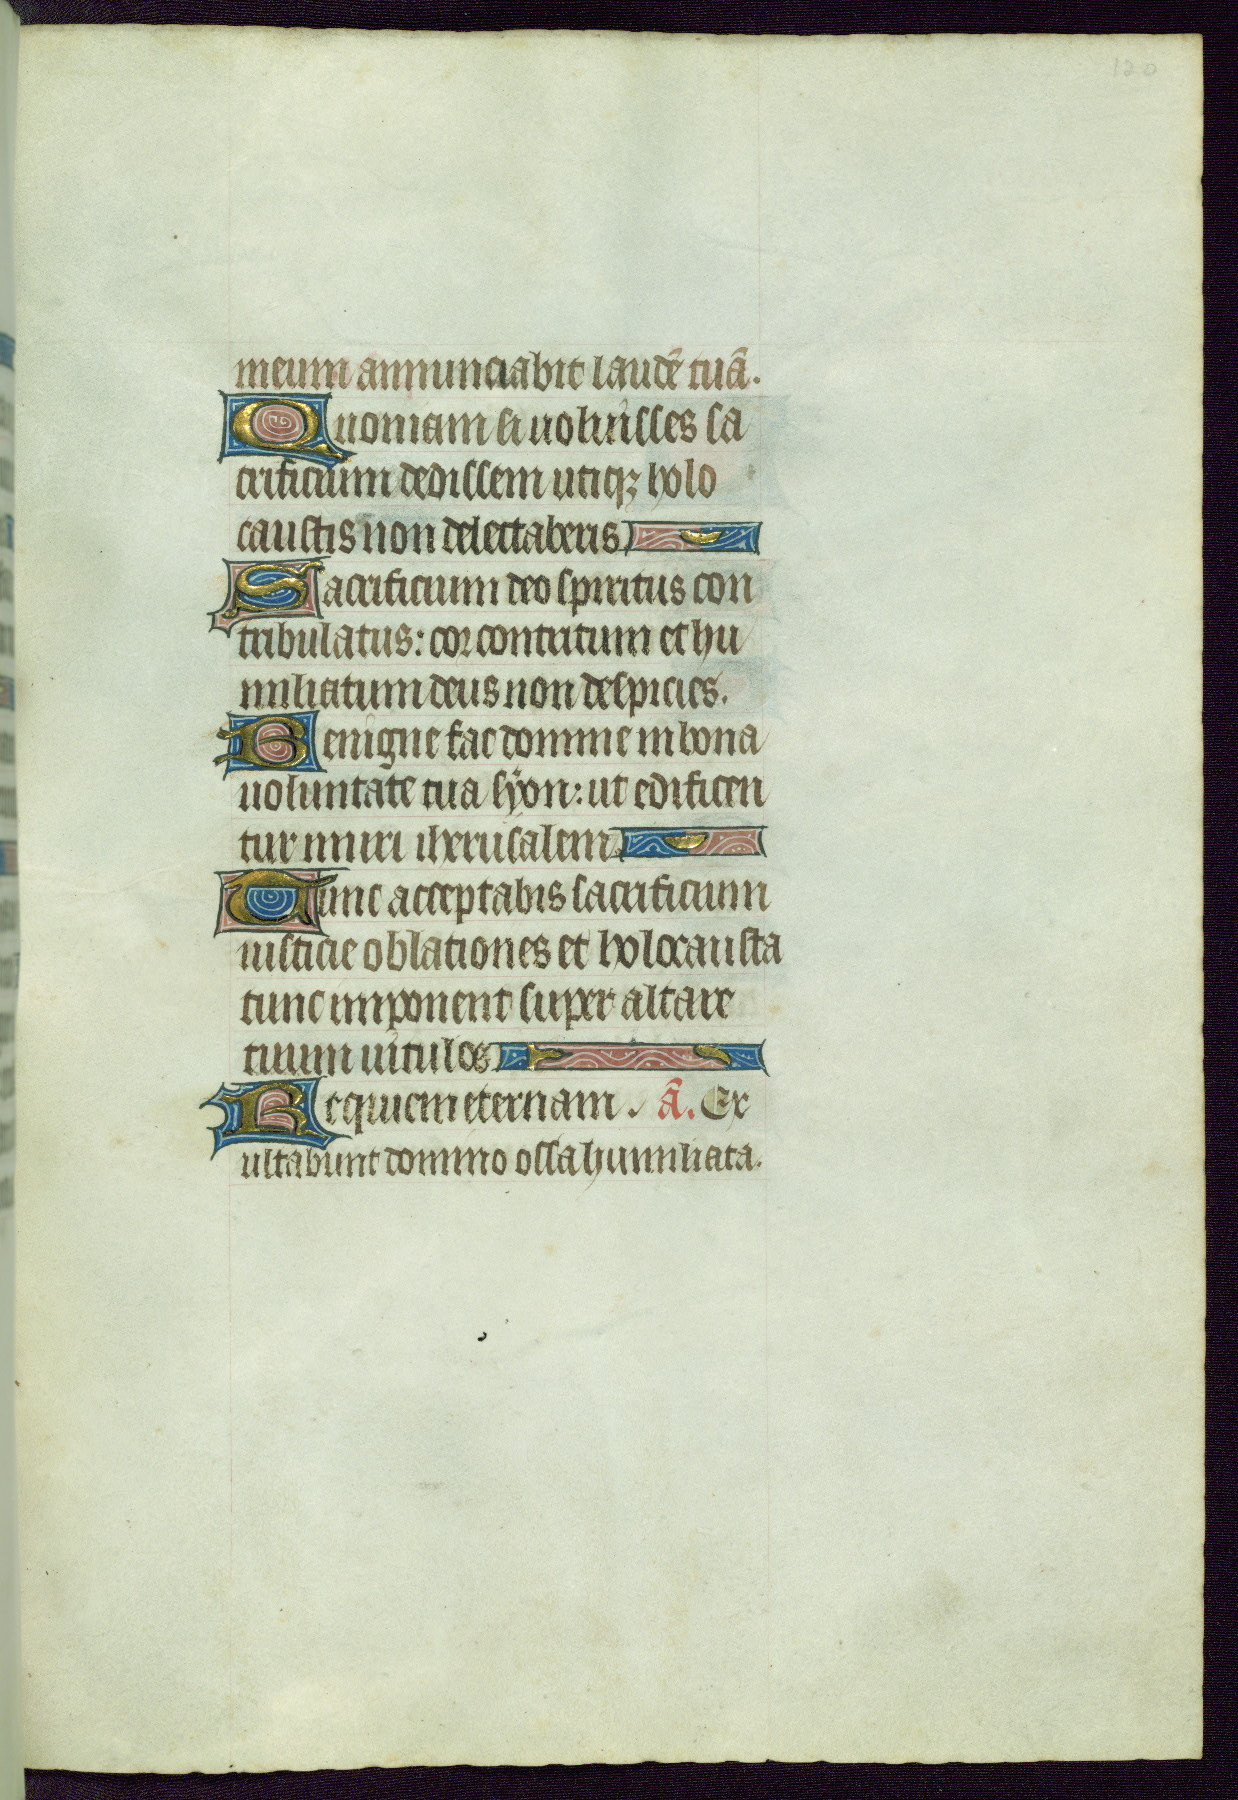 120
meum annunciabit laudē tuā.
Quoniam si uoluisses sa
crificium dedissem utiqꝫ holo
caustis non delectaberis
Sacrificium deo spiritus con
tribulatus: cor contritum et hu
miliatum deus non despicies.
Benigne fac domine in bona
uoluntate tua syon: ut edificen
tur muri iherusalem
Tunc acceptabis sacrificium
iusticie oblationes et holocausta
tunc imponent super altare
tuum uitulos
Requiem eternam. ā. Ex
ultabunt domino ossa humiliata.